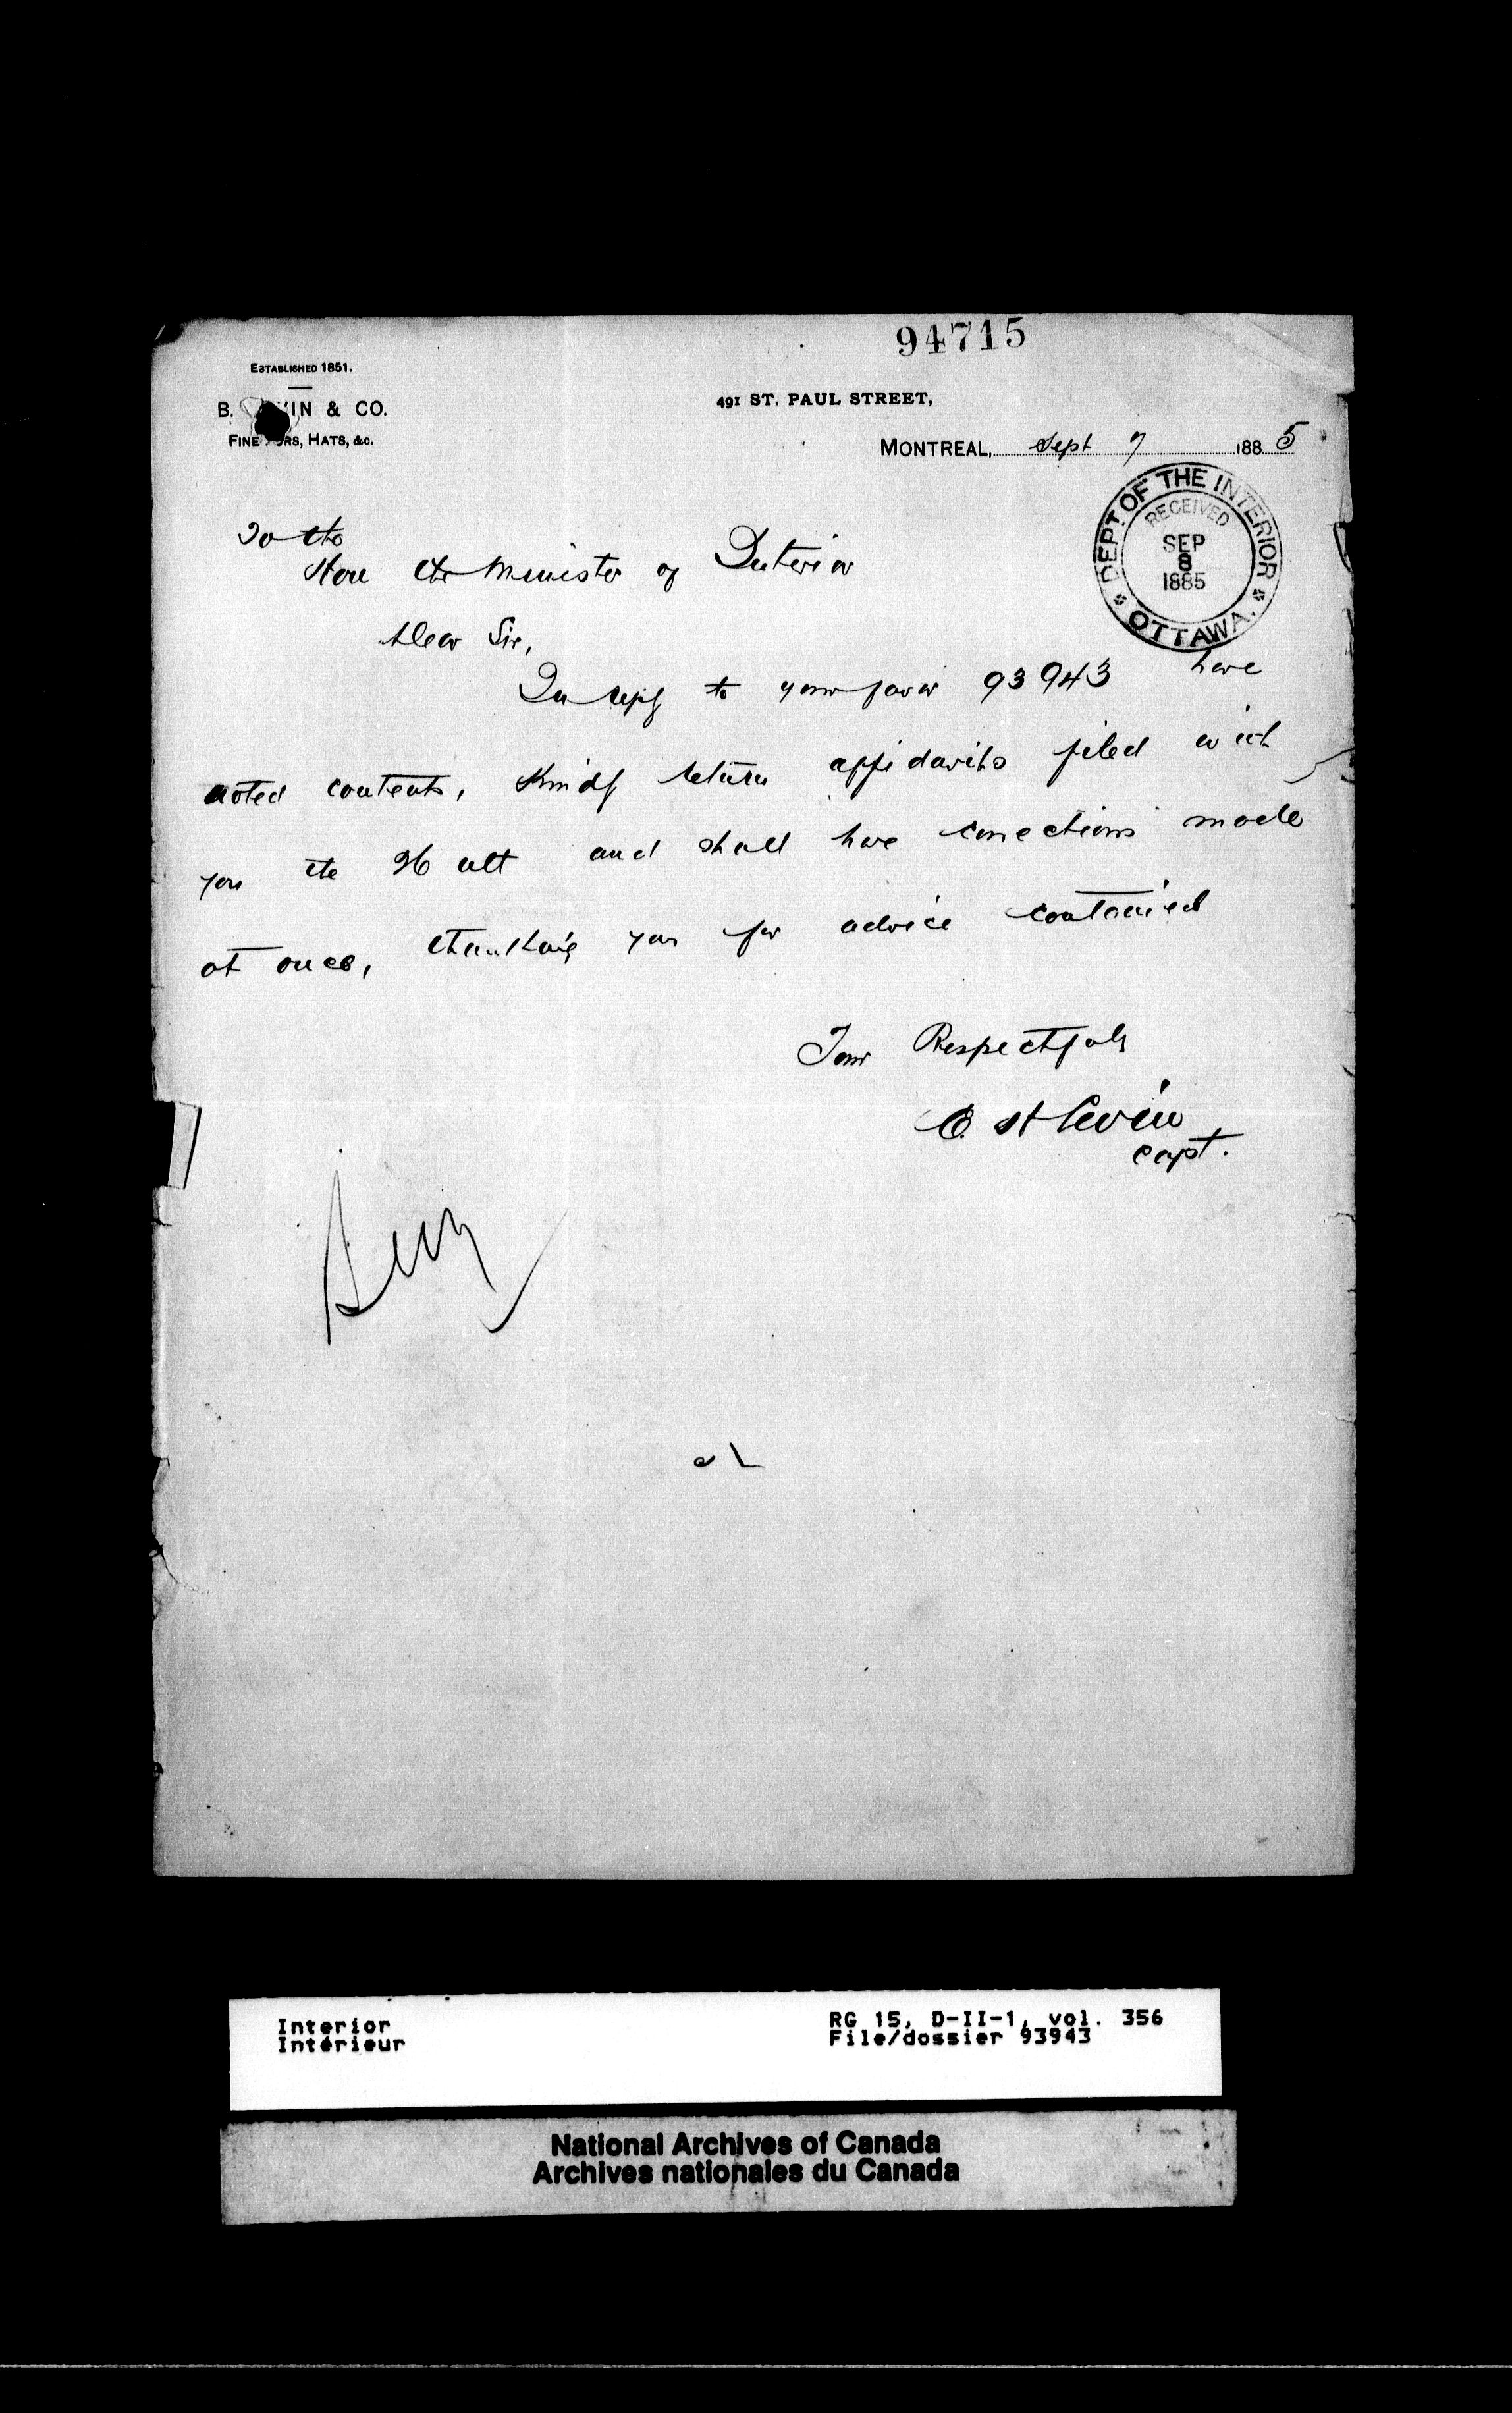 94715
ESTABLISHED 1851.
B. & CO.
FINE FURS, HATS, &c.
491 ST. PAUL STREET,
MONTREAL, Sept 7 1885
DEPT. OF THE INTERIOR
RECEIVED
SEP
8
1885
OTTAWA.
To the
Hon the Minister of Interior
Dear Sir,
In reply to your favor 93943 have
noted contents, Kindly return affidavits filed with
you the 26 ult and shall have corrections made
at once, thanking you for advice contained
Your Respectfully
E. H Levin
Capt.
Interior
Intérieur
RG 15, D-II-1, vol. 356
File/dossier 93943
National Archives of Canada
Archives nationales du Canada